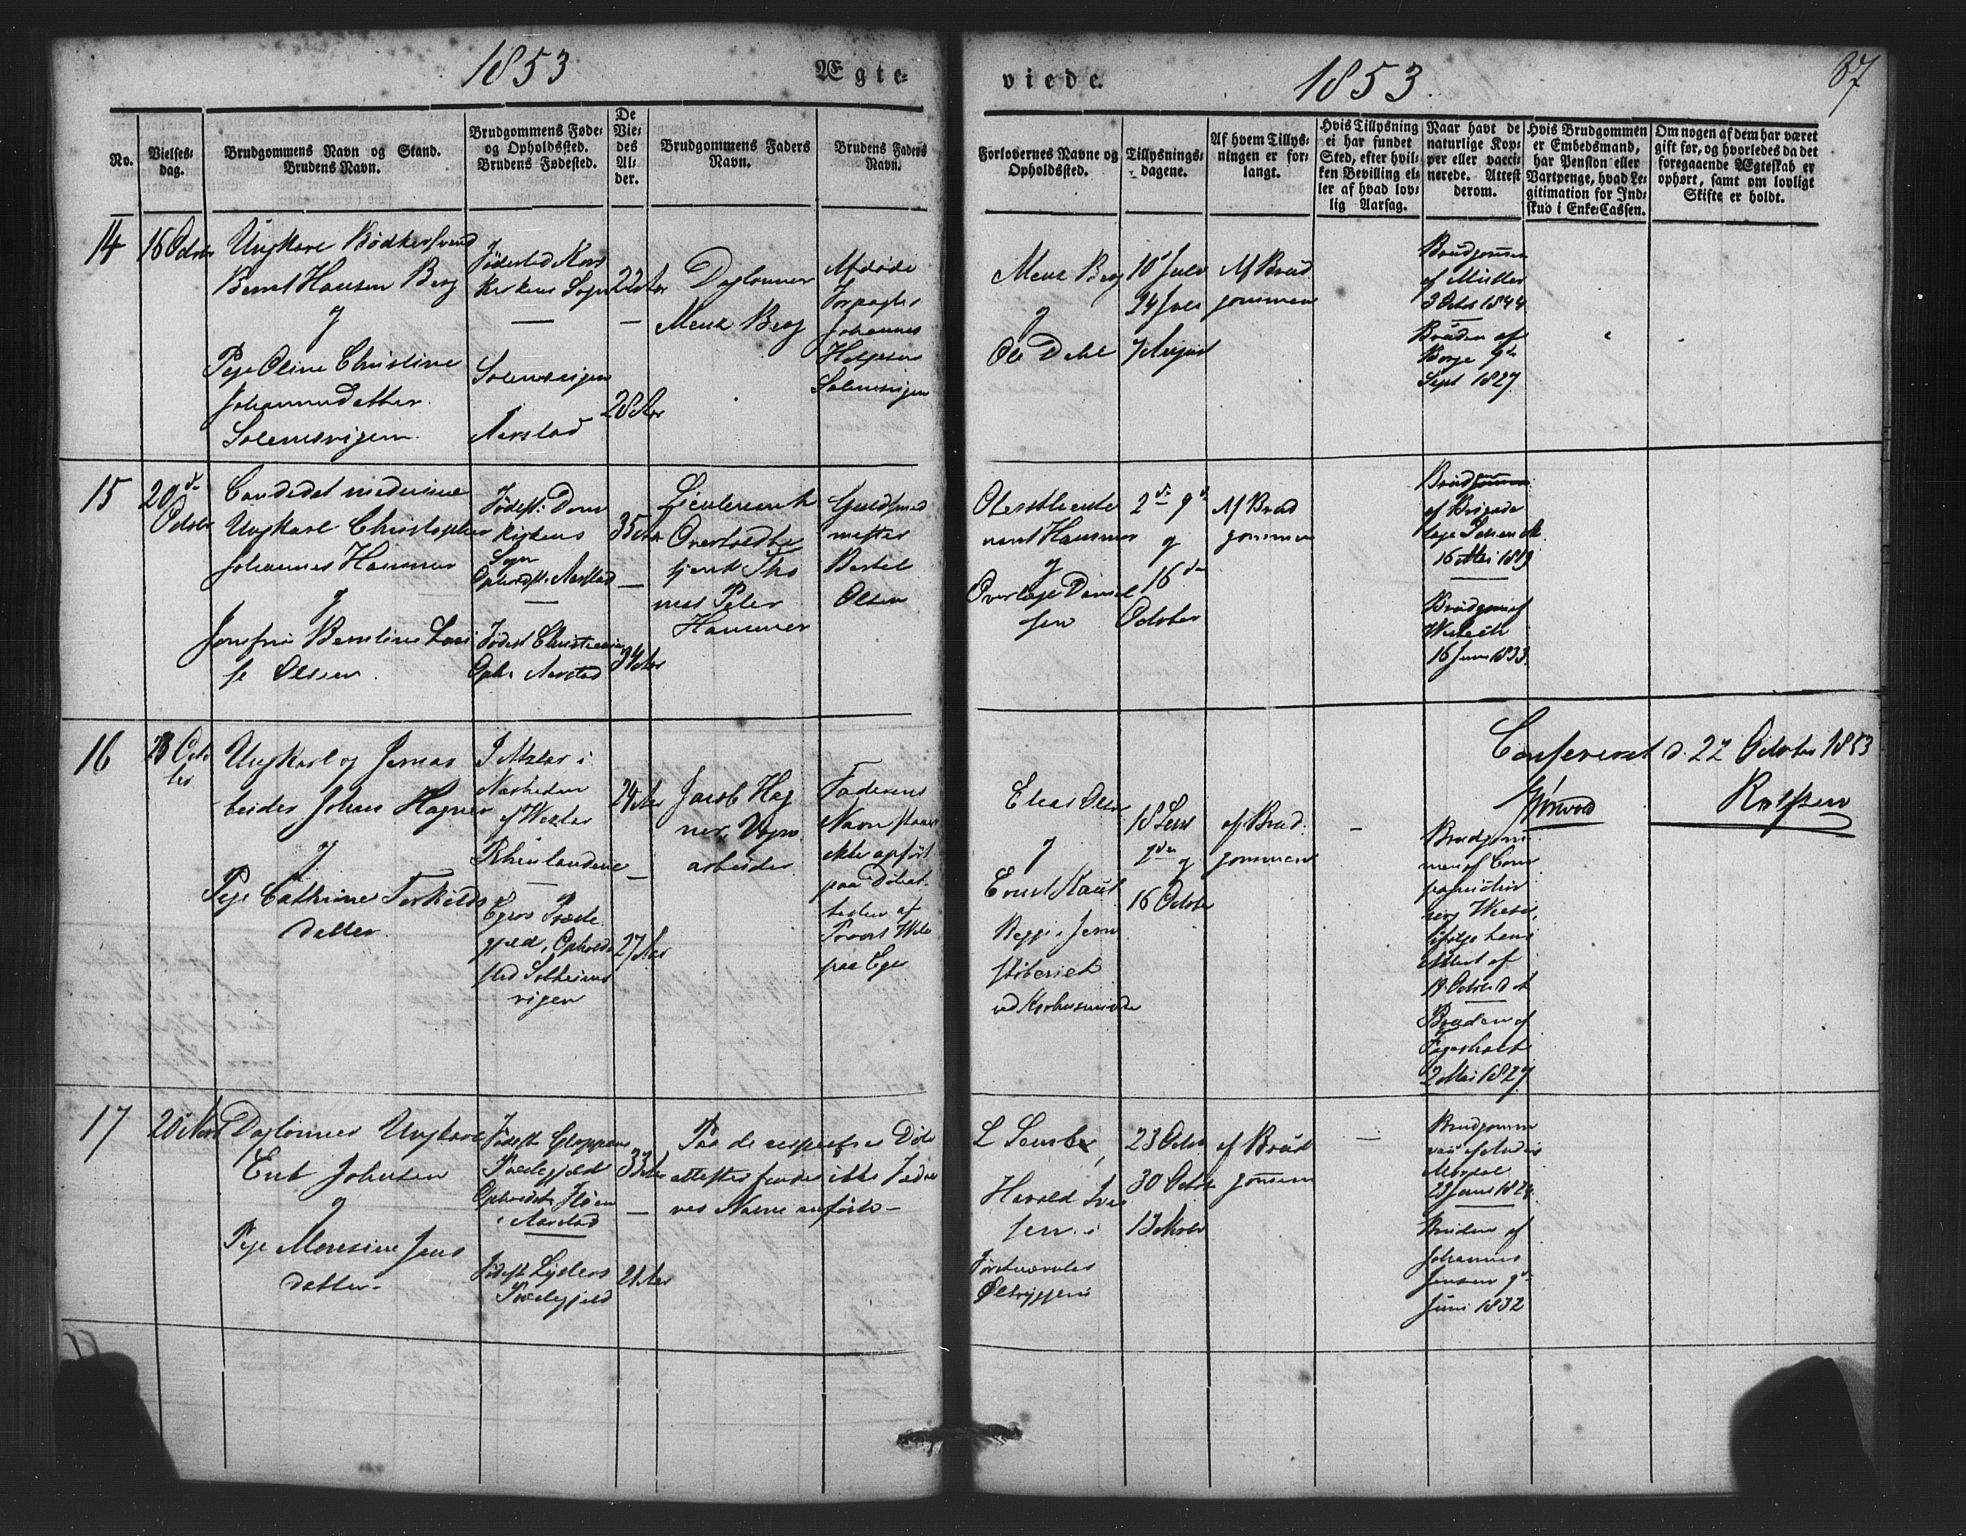 1853
Ægte-
viede.
1853.
37
No.
Vielses-
dag.
Brudgommens Navn og Stand.
Brudens Navn.
Brudgommens Føde-
og Opholdssted.
Brudens Fødested.
De
Vie-
des
Al-
der.
Brudgommens Faders
Navn.
Brudens Faders
Navn.
Forlovernes Navne og
Opholdssted.
Tillysnings-
dagene.
Af hvem Tillys-
ningen er for-
langt.
Hvis Tillysning
ei har fundet
Sted, efter hvil-
ken Bevilling el-
ler af hvad lov-
lig Aarsag.
Naar havt de
naturlige Kop-
per eller vacci-
nerede. Attest
derom.
Hvis Brudgommen
er Embedsmand,
har Pension eller
Vartpenge, hvad Le-
gitimation for Ind-
skud i Enke-Cassen.
Om nogen af dem har været
gift før, og hvorledes da det
foregaaende Ægteskab er
ophørt, samt om lovligt
Skifte er holdt.
14
16 Octobr
Ungkarl Bødkersvend
Bernt Hansen Berg
g
Pige Oline Christine
Johannesdatter
Solemsvigen.
Fødested Kors
Kirkens Sogn
Solemsvigen
Aarstad
22 Aar
28 Aar
Daglønner
Menz Berg
Afdøde
Forpagter
Johannes
Solemsvigen
Menz Berg
g
Ole Dahl
10 Juli
24 Juli
7 August
Af Brud
gommen
Brudgommen
af Müller
3 Octb 1844
Bruden af
Borge 9de
Sept 1827.
15
20de
Octobr
Candidat medicine
Ungkarl Christopher
Johannes Hammer
g
Jomfru Berntine Loui
se Olsen.
Fødest: Dom
kirkens
Sogn
Opholdst. Aarstad
Fødest Christiania
Oph: Aarstad
35 Aar
34 Aar
Lieutenant
Overtoldbe
tjent Tho
mas Peter
Hammer
Guldsmed
mester
Bertel
Olsen
Oberstlieute
nant Hammer
g
Overlæge Daniel
sen
2de 9de
g
16de
October
Af Brud
gommen
Brudgommen
af Brigade
læge Schenck
16 Mai 1819
16 Juni 1833.
16
23 Octo
ber
Ungkarl og Jernar
beider Johan Hagner
g
Pige Cathrine Torkilds
datter.
I Atzlar i
Nærheden
af Wetzlar
Rhinlandene
Egers Præste
gjeld, Opholds
sted Solheims
vigen
24 Aar
27 Aar
Jacob Hag
ner, Vogn
arbeider
Faderens
Navn staaer
ikke anført
paa Døbeat
testen af
Provst
paa Eger
Elias Olsen
g
Ernst Kaut
Begge i Jern
støberiet
18 Sept
2den g
16 October
af Brud
gommen
Conferent d. 22 October 1853
Brudgom
men af Com
attest af
19 October
Bruden af
2 Mai 1827
17
20 Nov
Daglønner Ungkarl
Erik Johnsen
g
Pige Moresine Jens
datter
Fødest Gloppens
Præstegjeld
Opholdst: Fløen
i Aarstad
Fødest Lysters
Præstegjeld
33 Aar
21 Aar
Paa de respective Døbe
attester findes ikke Fæder
nes Navne anførte
Harald Iver
sen i
23 Octbr
30 Octbr
13 Novbr
af Brud
gommen
Brudgommen
Bruden af
Johannes
Jensen 9de
Juni 1832